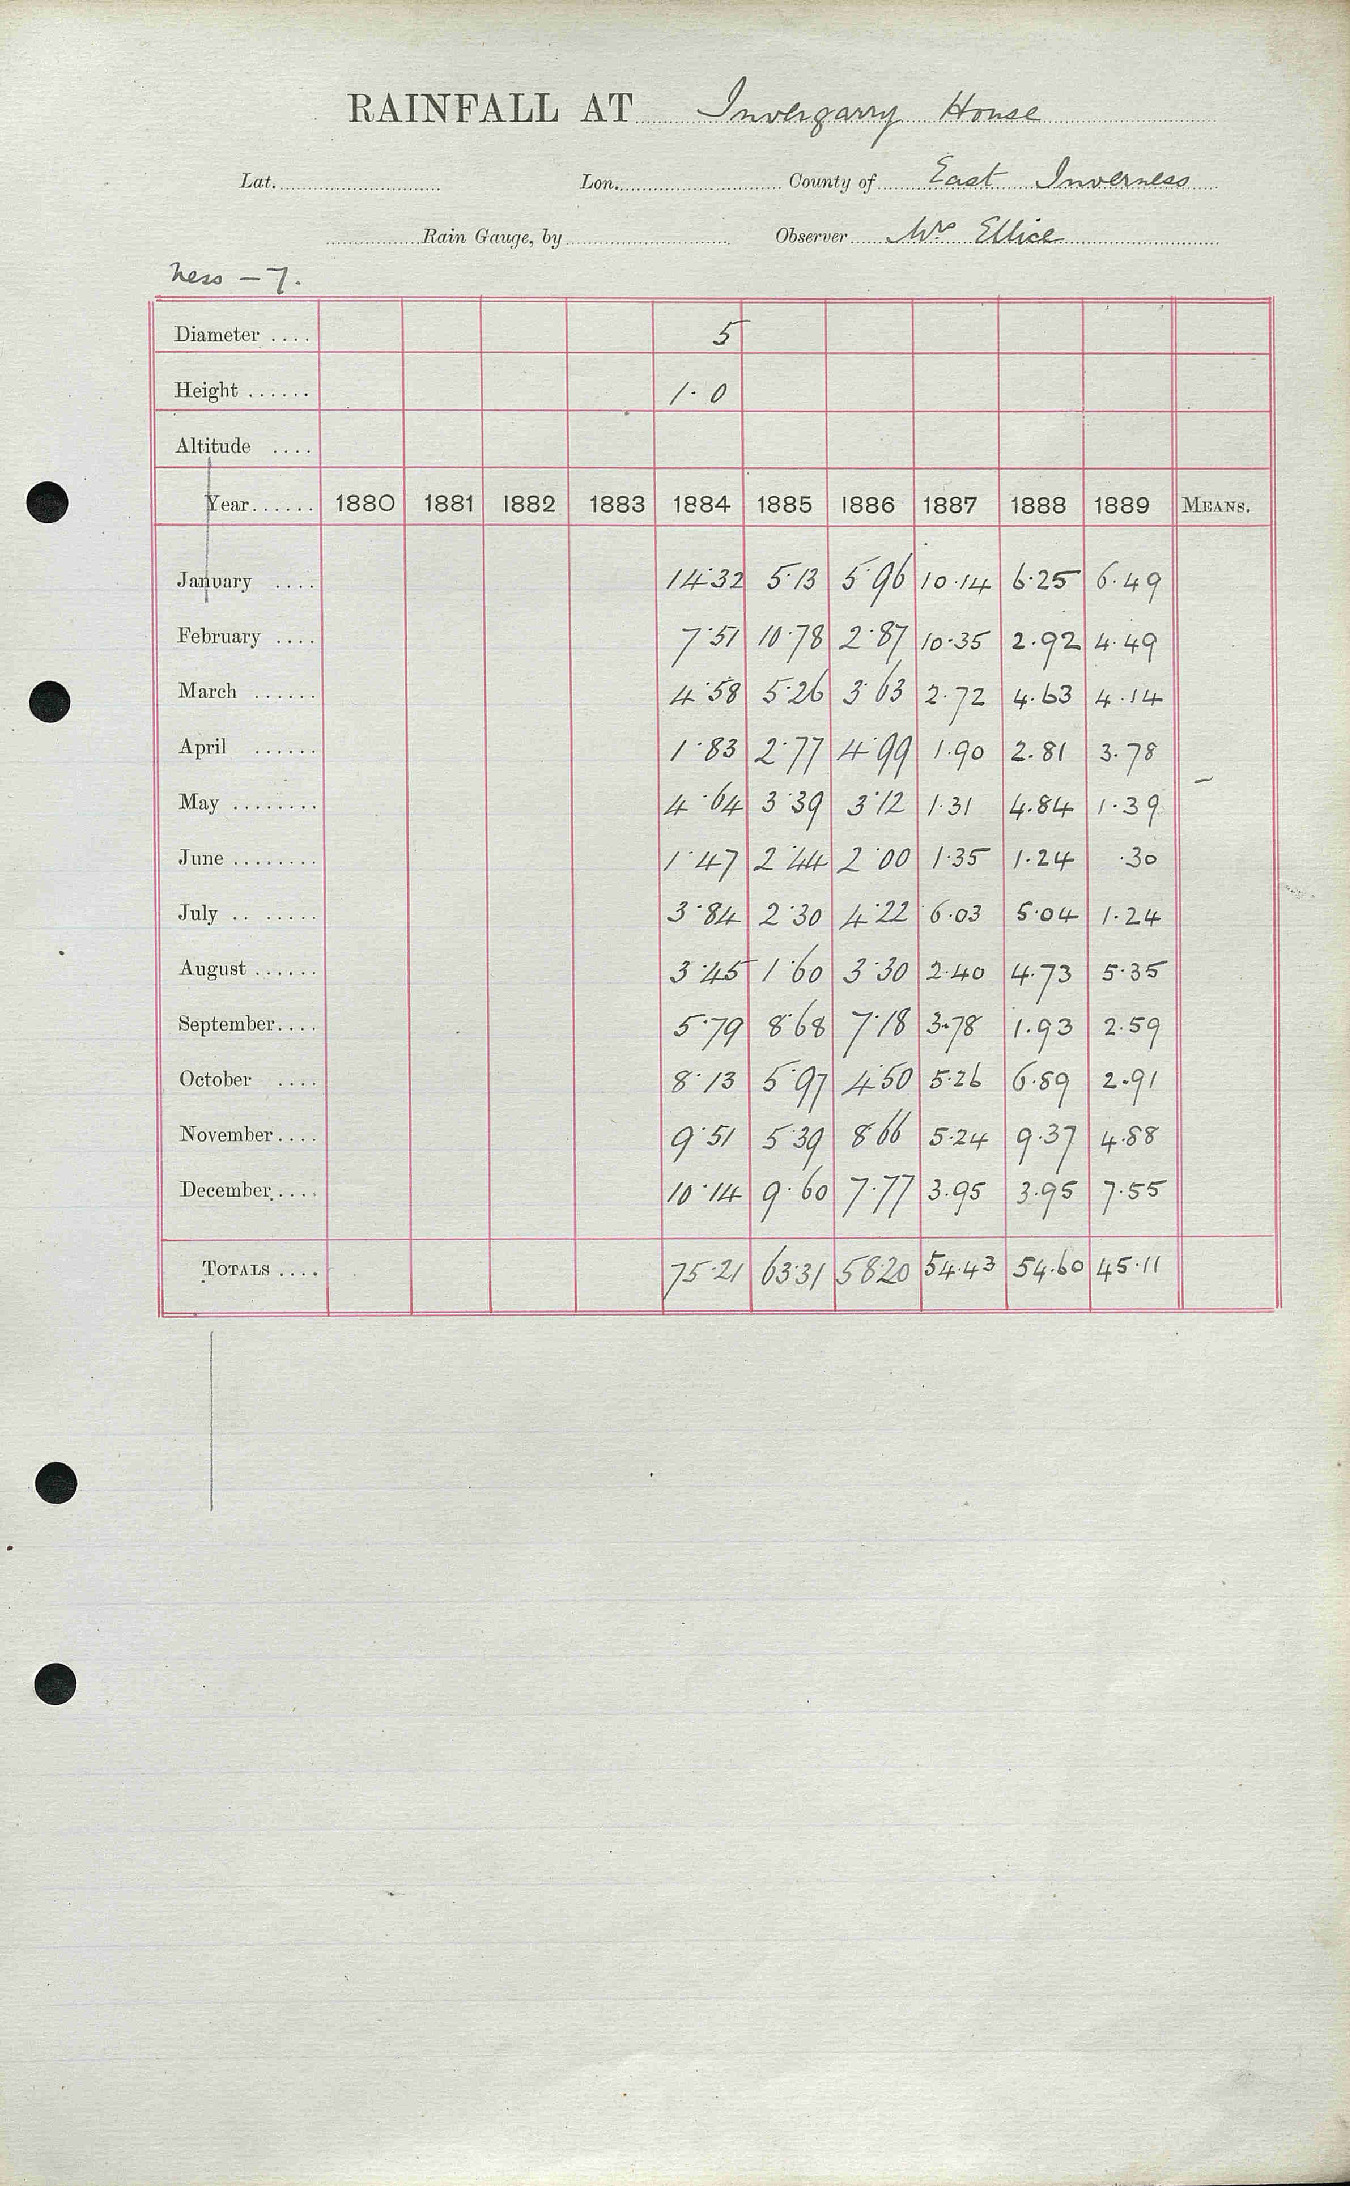 RAINFALL AT Invergarry House
Lat. Lon. County of East Inverness
Rain Gauge, by Observer Mrs Ellice
Ness - 7.
Diameter .... 5
Height ...... 1.0
Altitude ....
Year...... 1880 1881 1882 1883 1884 1885 1886 1887 1888 1889 MEANS.
January .... 14.32 5.13 5.96 10.14 6.25 6.49
February .... 7.51 10.78 2.87 10.35 2.92 4.49
March ...... 4.58 5.26 3.63 2.72 4.63 4.14
April ...... 1.83 2.77 4.99 1.90 2.81 3.78
May ........ 4.64 3.39 3.12 1.31 4.84 1.39
June ........ 1.47 2.44 2.00 1.35 1.24 .30
July .. ..... 3.84 2.30 4.22 6.03 5.04 1.24
August ...... 3.45 1.60 3.30 2.40 4.73 5.35
September.... 5.79 8.68 7.18 3.78 1.93 2.59
October .... 8.13 5.97 4.50 5.26 6.89 2.91
November.... 9.51 5.39 8.66 5.24 9.37 4.88
December.... 10.14 9.60 7.77 3.95 3.95 7.55
TOTALS .... 75.21 63.31 58.20 54.43 54.60 45.11